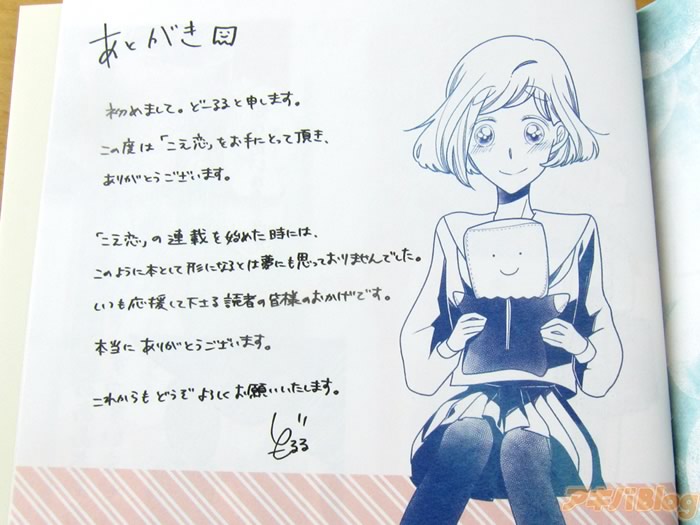 あとがき
初めまして。どーるると申します。
この度は「こえ恋」をお手にとって頂き、
ありがとうございます。
「こえ恋」の連載を始めた時には、
このように本として形になるとは夢にも思っておりませんでした。
いつも応援して下さる読者の皆様のおかげです。
本当にありがとうございます。
これからもどうぞよろしくお願いいたします。
どーるる
アキバBlog